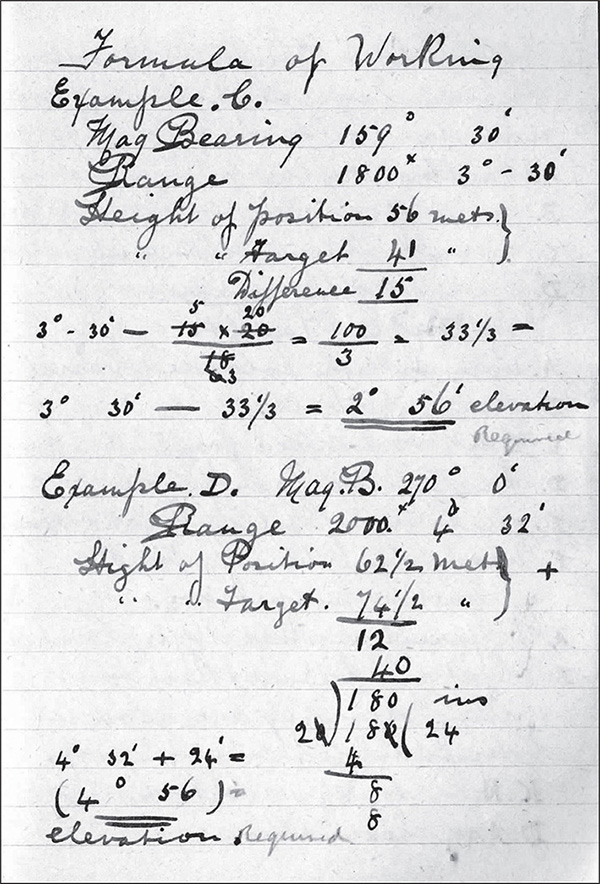 Formula of Working
Example. C.
Mag Bearing 159° 30'
Range 1800ˣ 3° - 30'
Height of position 56 mets. }
" " Target 41 " }
Difference 15
5 20
3° - 30' — 15 x 20 = 100 = 33 1/3 =
3
3
3° 30' — 33 1/3 = 2° 56' elevation
Required
Example. D. Mag. B. 270° 0'
Range 2000ˣ 4° 32'
Hight of Position 62 1/2 Mets } +
" " Target. 74 1/2 " }
12
40
180 ins
20 ) 180 ( 24
4° 32' + 24' = 4
(4° 56) = 8
8
elevation. Required